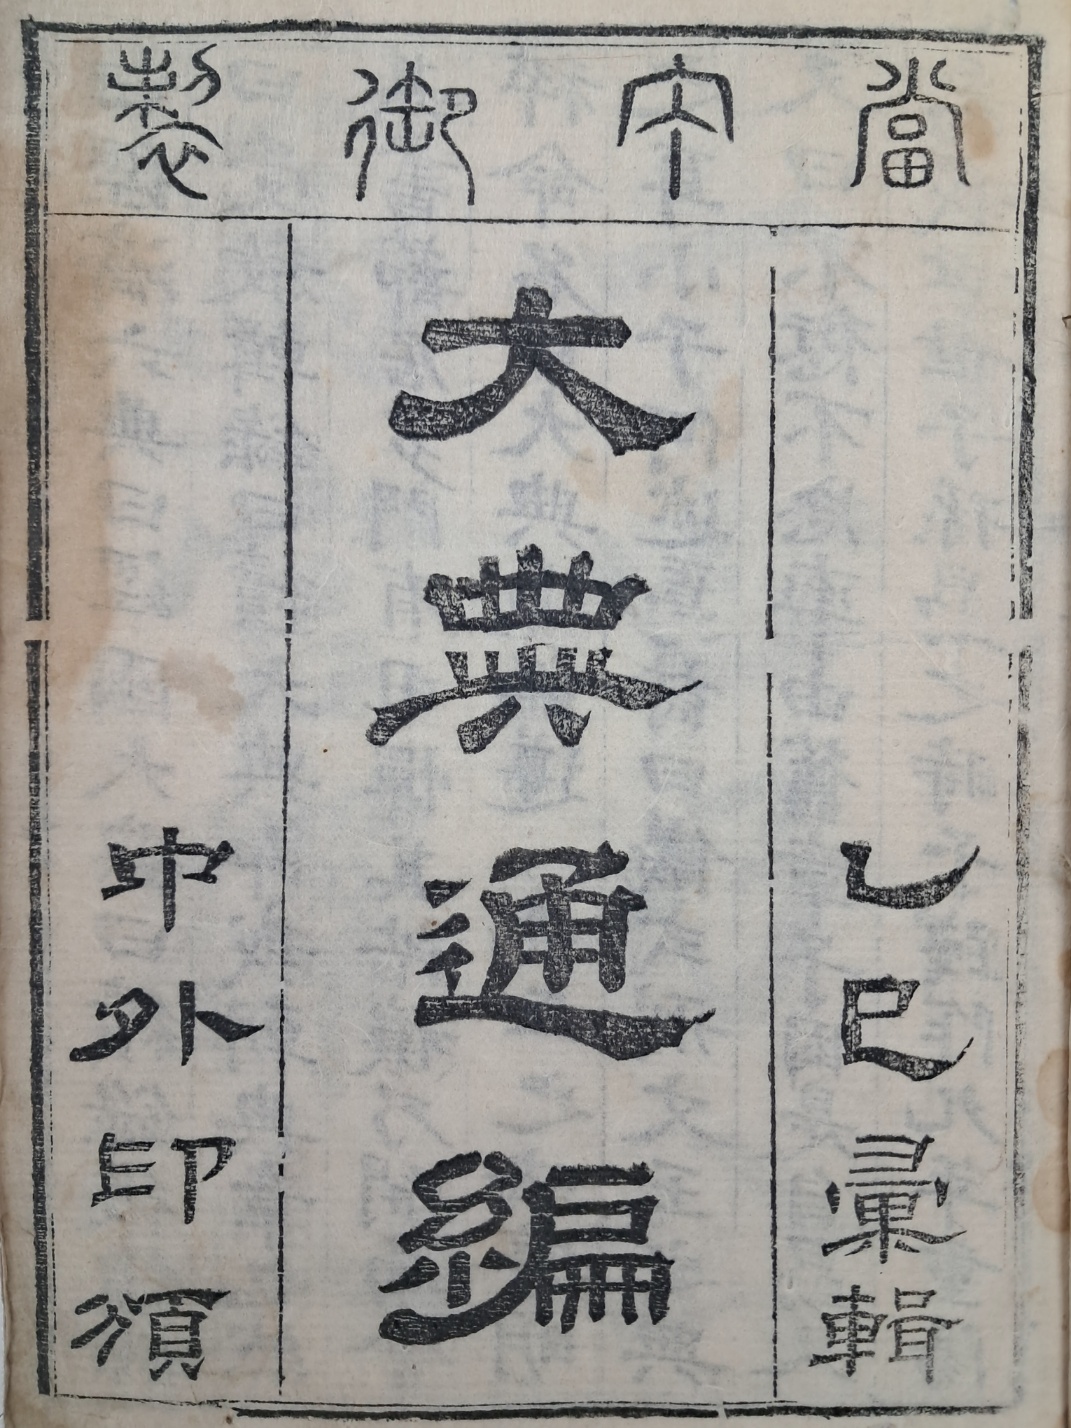 當宁御製
乙巳彙輯
大典通編
中外印頒